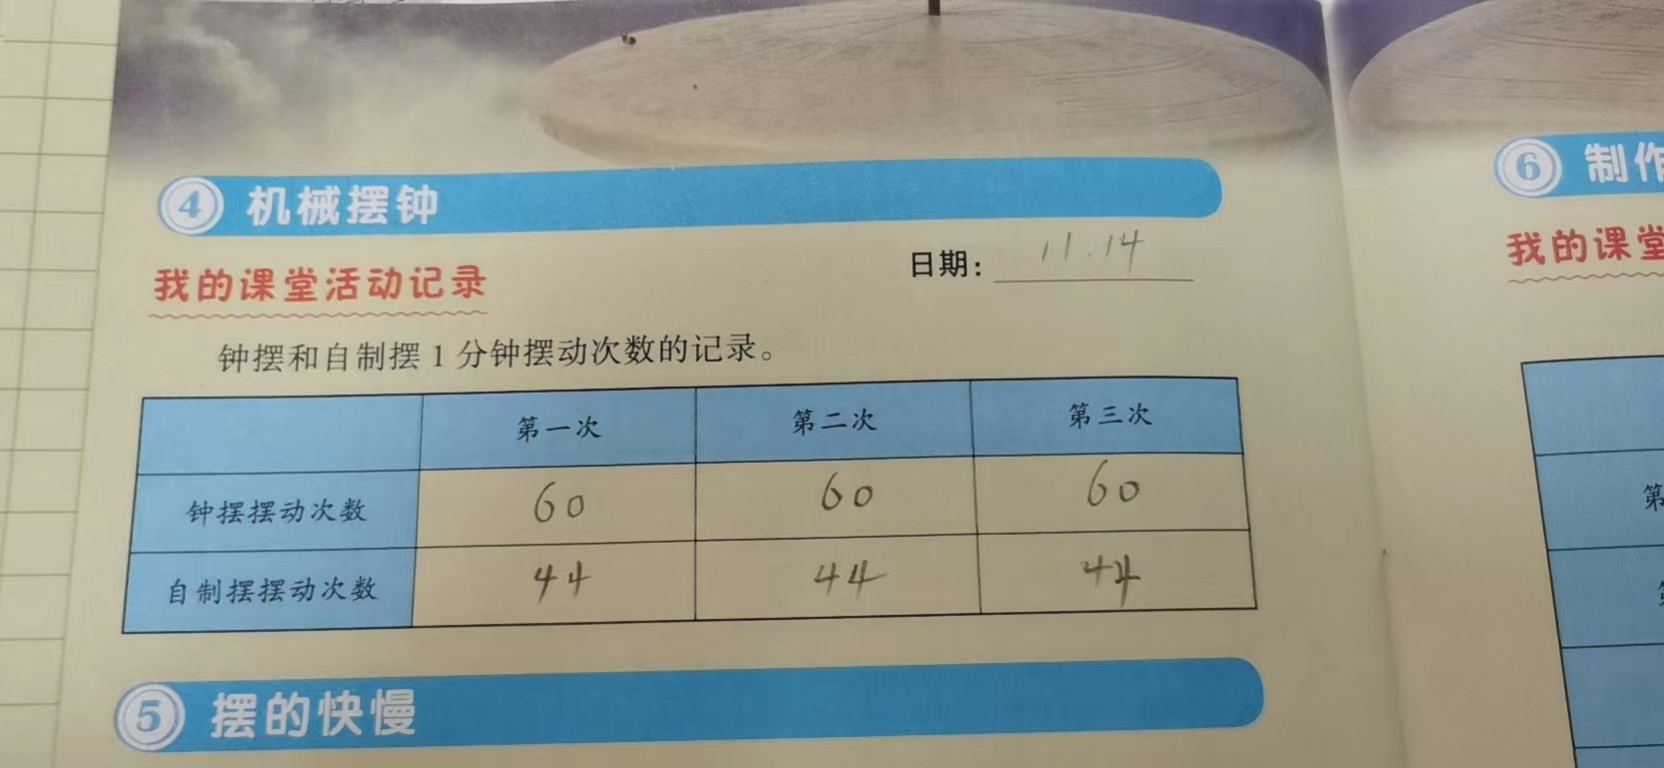 ④ 机械摆钟
我的课堂活动记录
日期: 11.14
钟摆和自制摆1分钟摆动次数的记录。
第一次 第二次 第三次
钟摆摆动次数 60 60 60
自制摆摆动次数 44 44 44
⑤ 摆的快慢
⑥ 制作
我的课堂
第